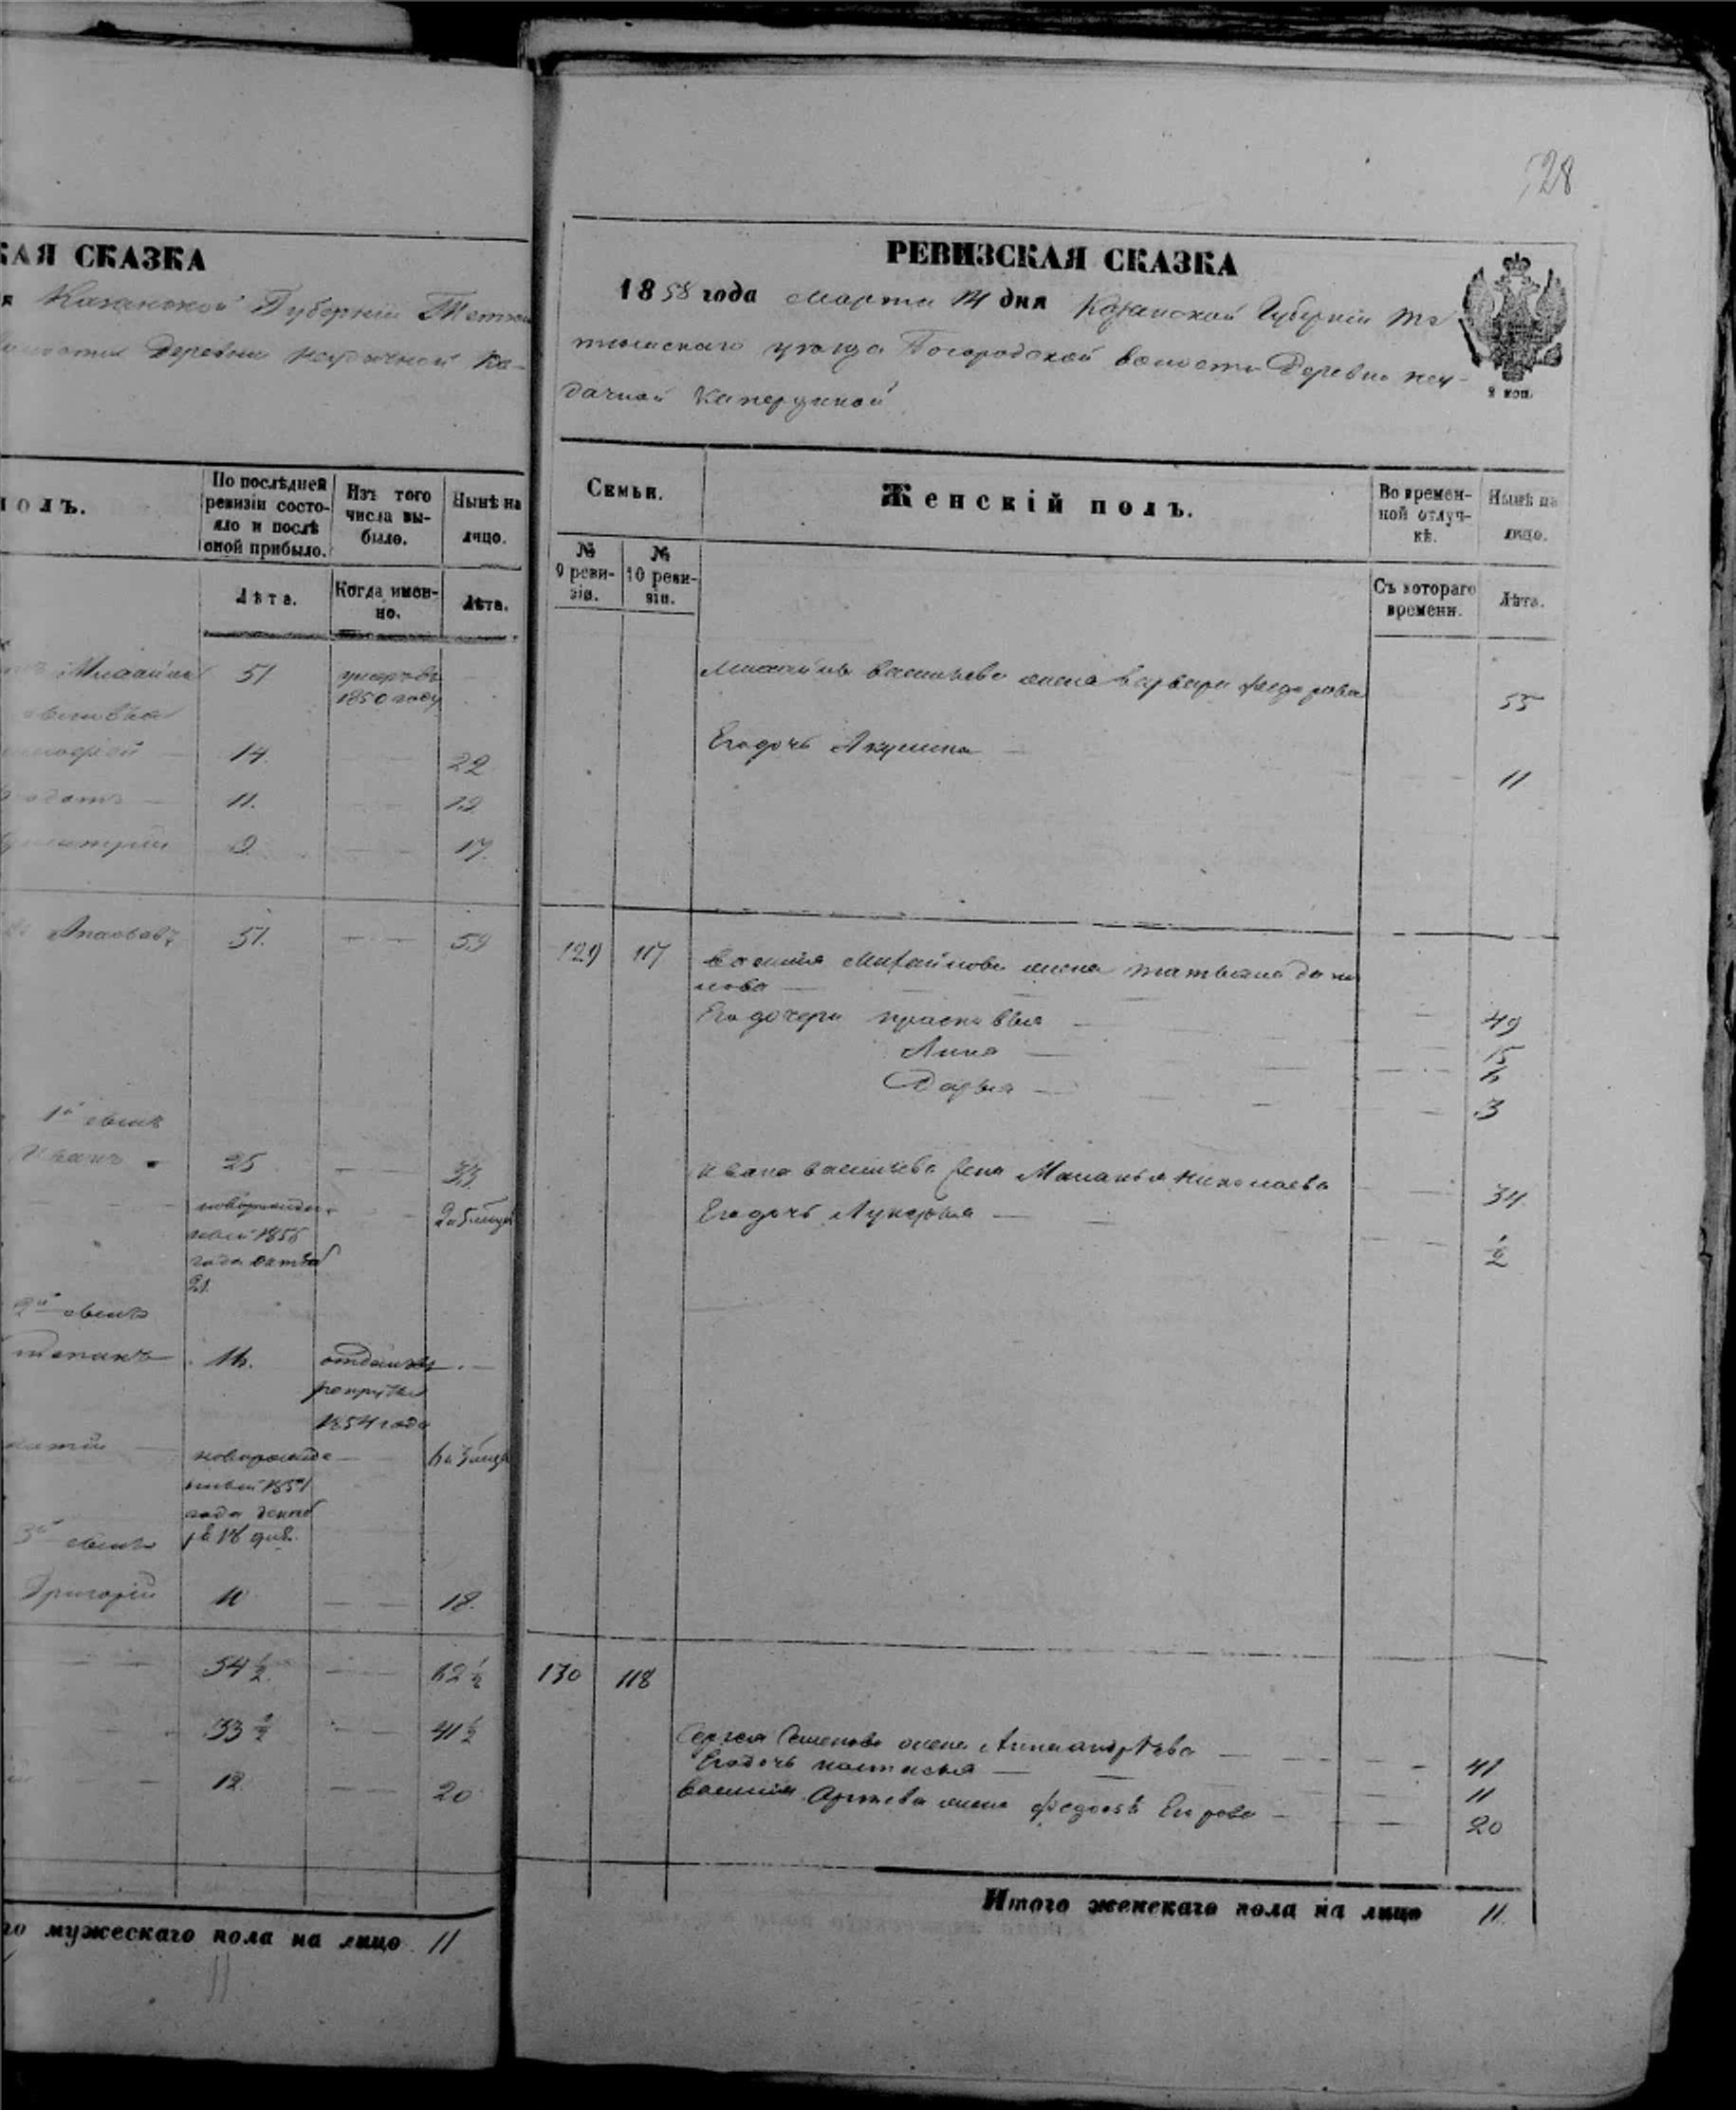 528
КАЯ СКАЗКА
Казанской Губернiи
Деревни неудачной Ка-
ПОЛЪ.
По послѣдней ревизiи состояло и послѣ оной прибыло.
Изъ того числа выбыло.
Нынѣ на лицо.
Лѣта.
Когда именно.
Лѣта.
Михайла 51 умеръ въ
1850 году
14. 22
11. 19
9. 17.
51. 59
1й сынъ
Иванъ 25 33
новорожден-
ный 1855
года
21.
2й сынъ
16. отданъ въ
рекруты
1854 года
новорожде
нный 1851
года декаб
ря 18 дня.
3й сынъ
Григорiй 10 18.
54 1/2 62 1/2
33 1/2 41 1/2
12 20
го мужескаго пола на лицо 11
11
РЕВИЗСКАЯ СКАЗКА
1858 года марта 14 дня Казанской Губернiи Те
тюшскаго уезда Богородской волости Деревни неу-
дачной Каперушной
2 коп.
Семьи.
Женскiй полъ.
Во временной отлучкѣ.
Нынѣ на лицо.
№ 9 ревизiи.
№ 10 ревизiи.
Съ котораго времени.
Лѣта.
Михайлы васильева жена варвара федорова
55
Его дочь Акулина
11
129 117 василья Михайлова жена татьяна дани
лова
49
Его дочери прасковья
15
Анна
6
Дарья
3
Ивана васильева жена Маланья николаева
34
Его дочь Лукерья
1/2
130 118
Сергея Семенова жена Анна андрѣева
41
Его дочь настасья
11
василия жена федосья Егорова
20
Итого женскаго пола на лицо 11.